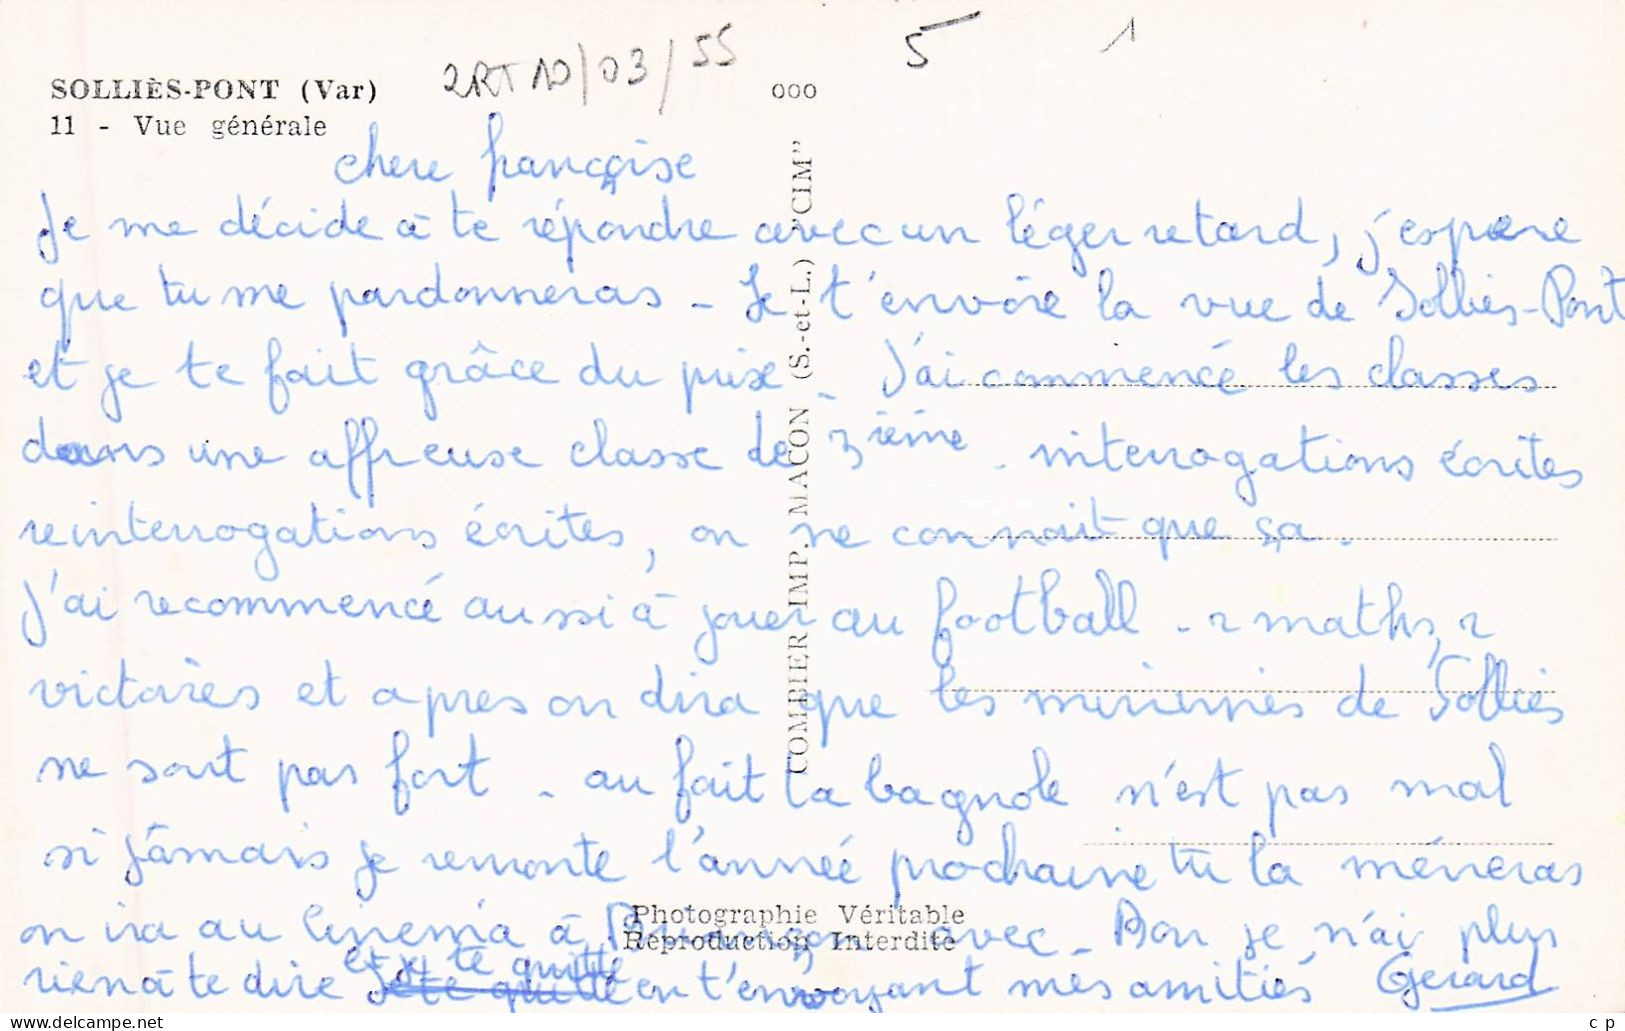 2RT 10/03/55
5
1
SOLLIÈS-PONT (Var)
11 - Vue générale
ooo
COMBIER IMP. MACON (S.-et-L.) "CIM"
chere françoise
Je me décide à te répondre avec un léger retard, j'espere
que tu me pardonneras - Je t'envoie la vue de Solliès-Pont
et je te fait grâce du prix - J'ai commencé les classes
dans une affreuse classe de 3ième - interrogations écrites
reinterrogations écrites, on ne connait que ça -
J'ai recommencé aussi à jouer au football - 2 maths, 2
victoires et apres on dira que les minimes de Solliès
ne sont pas fort - au fait ta bagnole n'est pas mal
si jamais je remonte l'année prochaine tu la méneras
on ira au Cinema à Briançon avec - Bon je n'ai plus
rien à te dire et je te quitte en t'envoyant mes amitiés Gerard
Photographie Véritable
Reproduction Interdite
www.delcampe.net
c_p